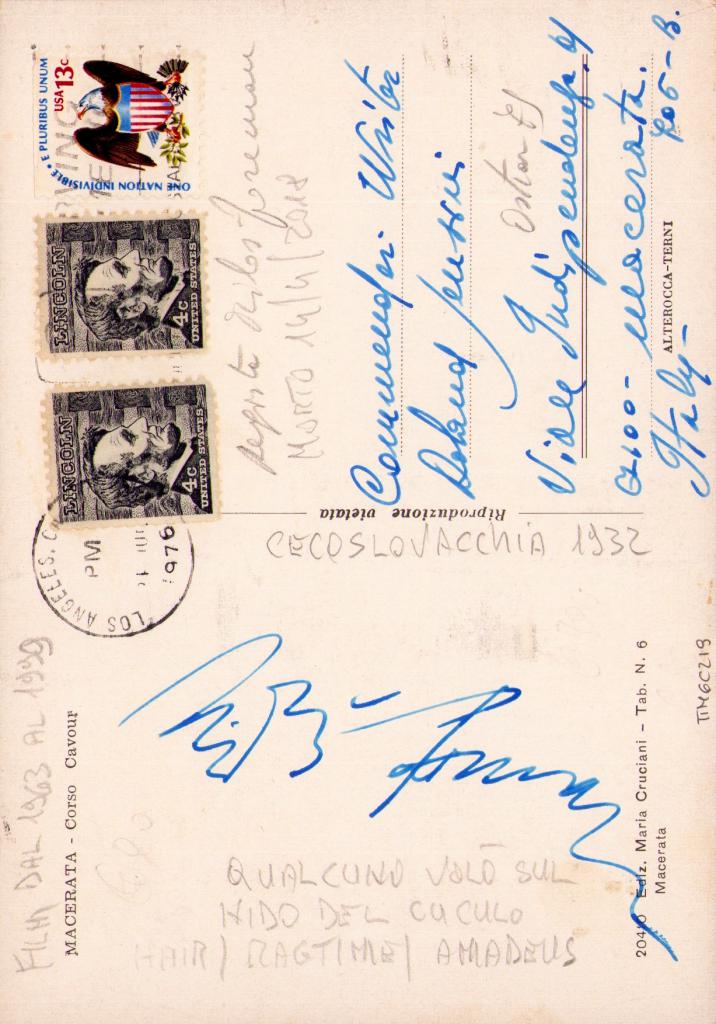 FILM DAL 1963 AL 1999
MACERATA - Corso Cavour
QUALCUNO VOLÒ SUL
NIDO DEL CUCULO
HAIR / RAGTIME / AMADEUS
20410 Ediz. Maria Cruciani - Tab. N. 6
Macerata
TM6C219
CECOSLOVACCHIA 1932
Riproduzione vietata
LOS ANGELES, C
PM
1976
LINCOLN
4c
UNITED STATES
LINCOLN
4c
UNITED STATES
E PLURIBUS UNUM
USA 13c
ONE NATION INDIVISIBLE
regista Milos Foreman
MORTO 14/4/2018
Viale Indipendenza
Macerata.
Italy-
ALTEROCCA-TERNI